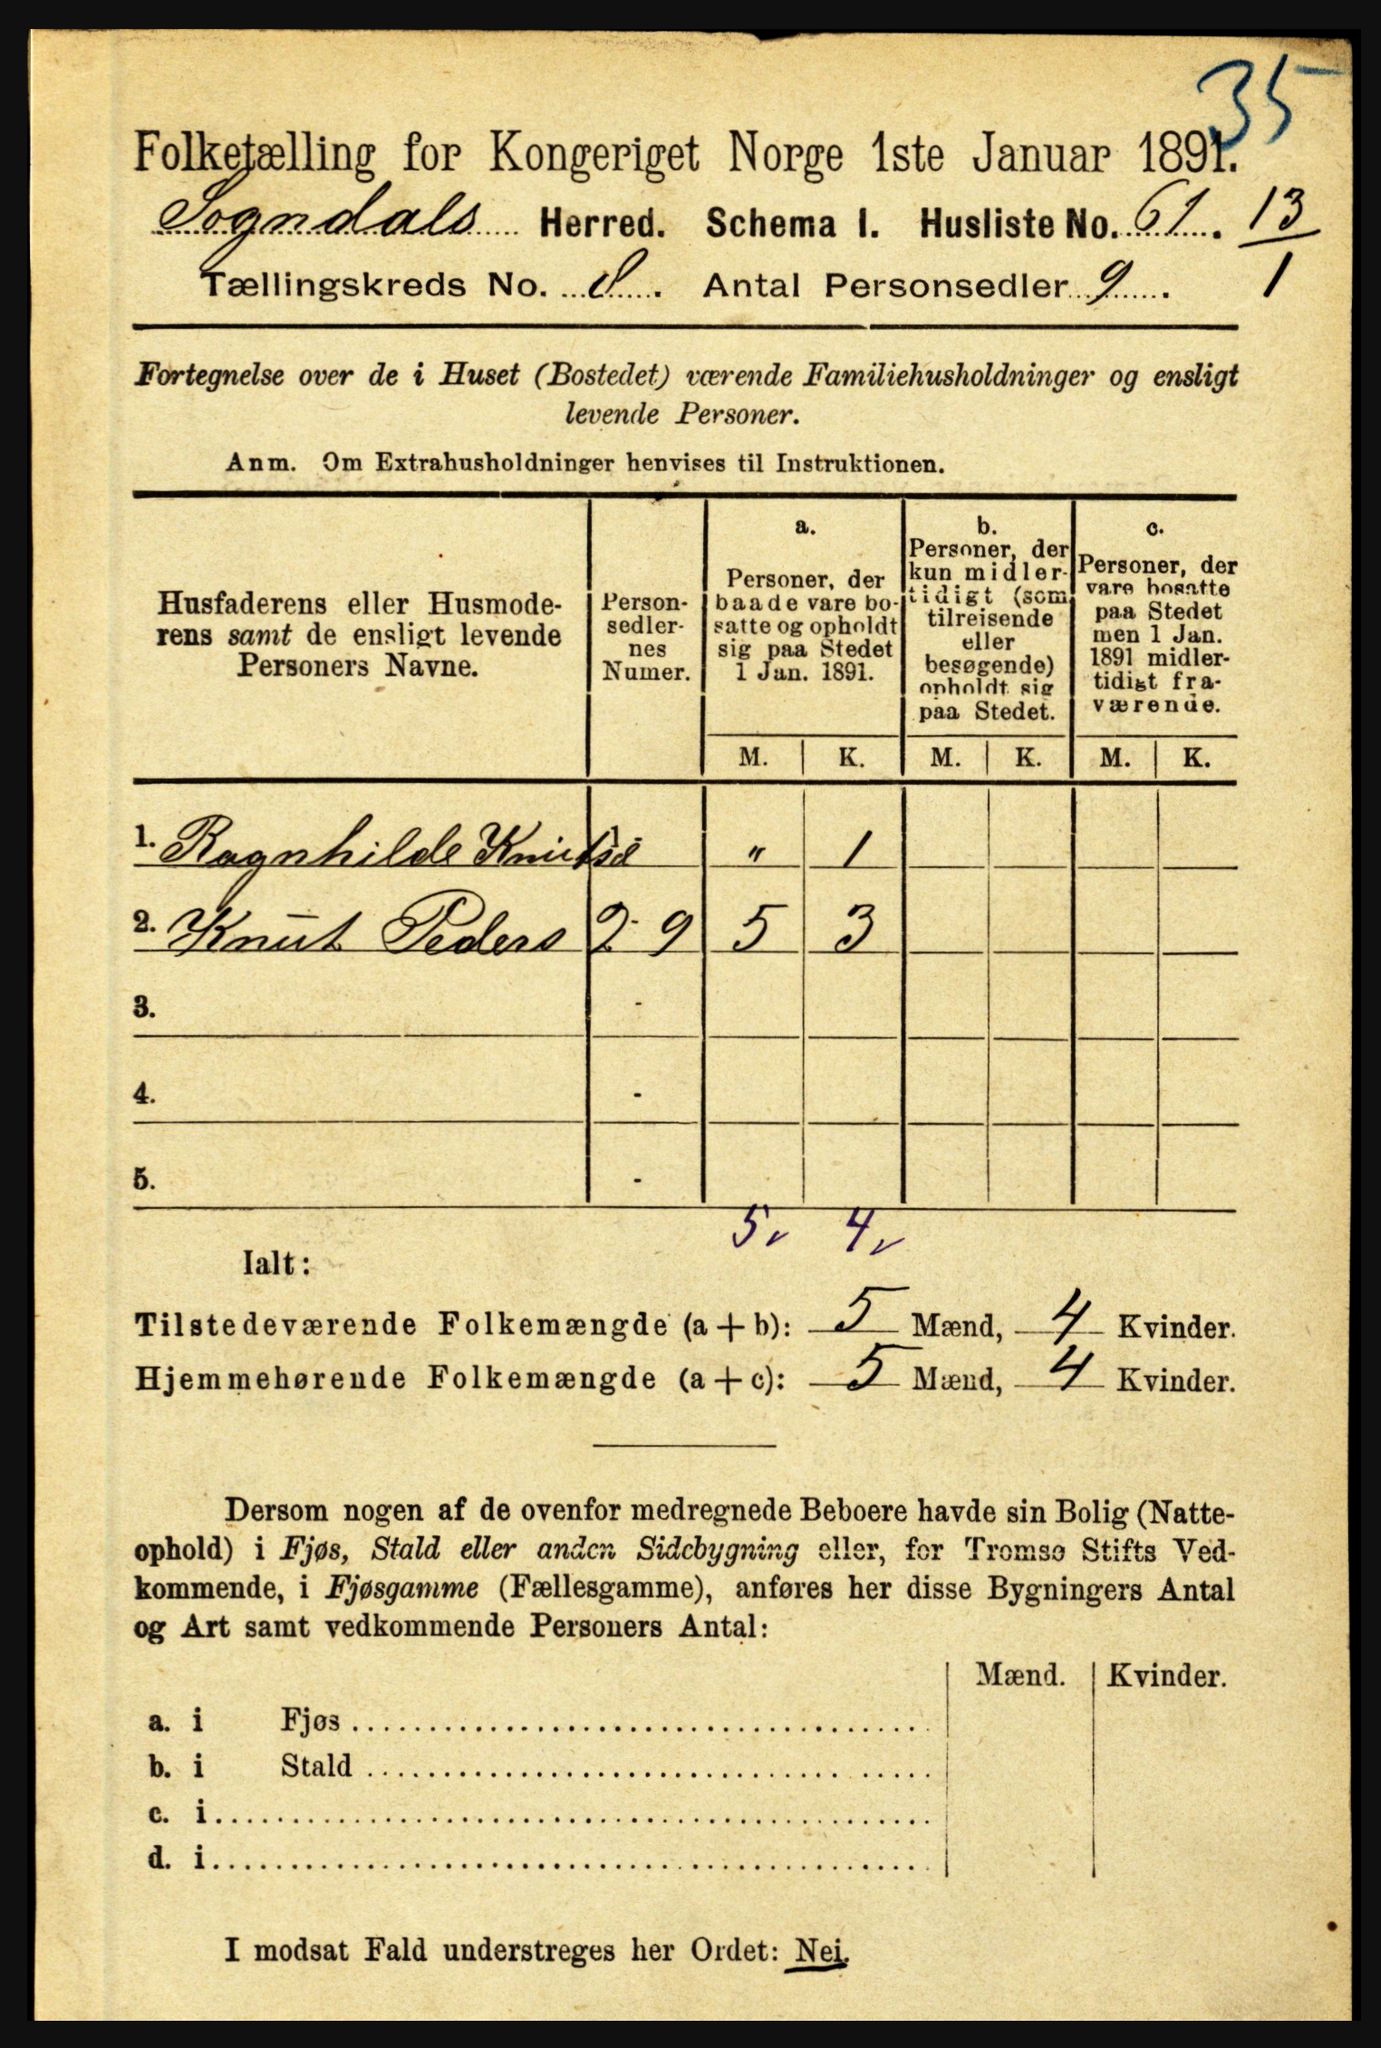 35
Folketælling for Kongeriget Norge 1ste Januar 1891.
Sogndals Herred. Schema I. Husliste No. 61. 13
Tællingskreds No. 8. Antal Personsedler 9. 1
Fortegnelse over de i Huset (Bostedet) værende Familiehusholdninger og ensligt
levende Personer.
Anm. Om Extrahusholdninger henvises til Instruktionen.
Husfaderens eller Husmode-
rens samt de ensligt levende
Personers Navne.
Person-
sedler-
nes
Numer.
a.
Personer, der
baade vare bo-
satte og opholdt
sig paa Stedet
1 Jan. 1891.
b.
Personer, der
kun midler-
tidigt (som
tilreisende
eller
besøgende)
opholdt sig
paa Stedet.
c.
Personer, der
vare bosatte
paa Stedet
men 1 Jan.
1891 midler-
tidigt fra-
værende.
M. K. M. K. M. K.
1. Ragnhilde " 1
2. Knut Peders 2-9 5 3
3. -
4. -
5. -
5 4
Ialt:
Tilstedeværende Folkemængde (a + b): 5 Mænd, 4 Kvinder.
Hjemmehørende Folkemængde (a + c): 5 Mænd, 4 Kvinder.
Dersom nogen af de ovenfor medregnede Beboere havde sin Bolig (Natte-
ophold) i Fjøs, Stald eller anden Sidebygning eller, for Tromsø Stifts Ved-
kommende, i Fjøsgamme (Fællesgamme), anføres her disse Bygningers Antal
og Art samt vedkommende Personers Antal:
Mænd. Kvinder.
a. i Fjøs
b. i Stald
c. i
d. i
I modsat Fald understreges her Ordet: Nei.